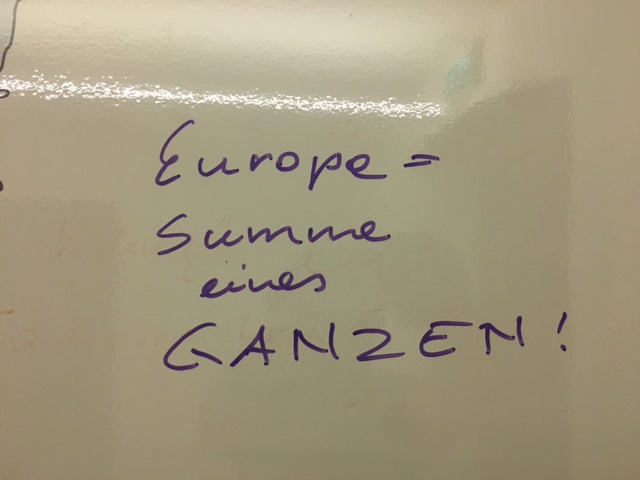 Europe =
Summe
eines
GANZEN!